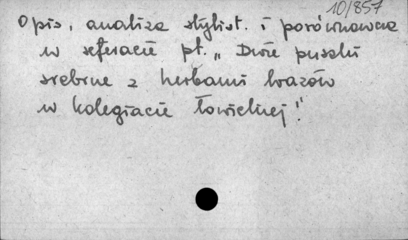 10/857
Opis, analiza stylist. i porównawcza
w referacie pt. „Dwie puszki
srebrne z herbami
w kolegiacie łowickiej".